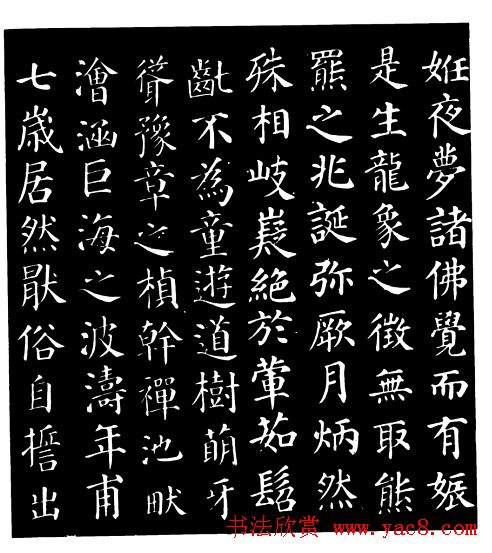 姙夜夢諸佛覺而有娠
是生龍象之徵無取熊
羆之兆誕弥厥月炳然
殊相岐嶷絕於葷茹髫
齔不為童遊道樹萌牙
聳豫章之楨幹禪池畎
澮涵巨海之波濤年甫
七歲居然猒俗自誓出
书法欣赏 www.yac8.com